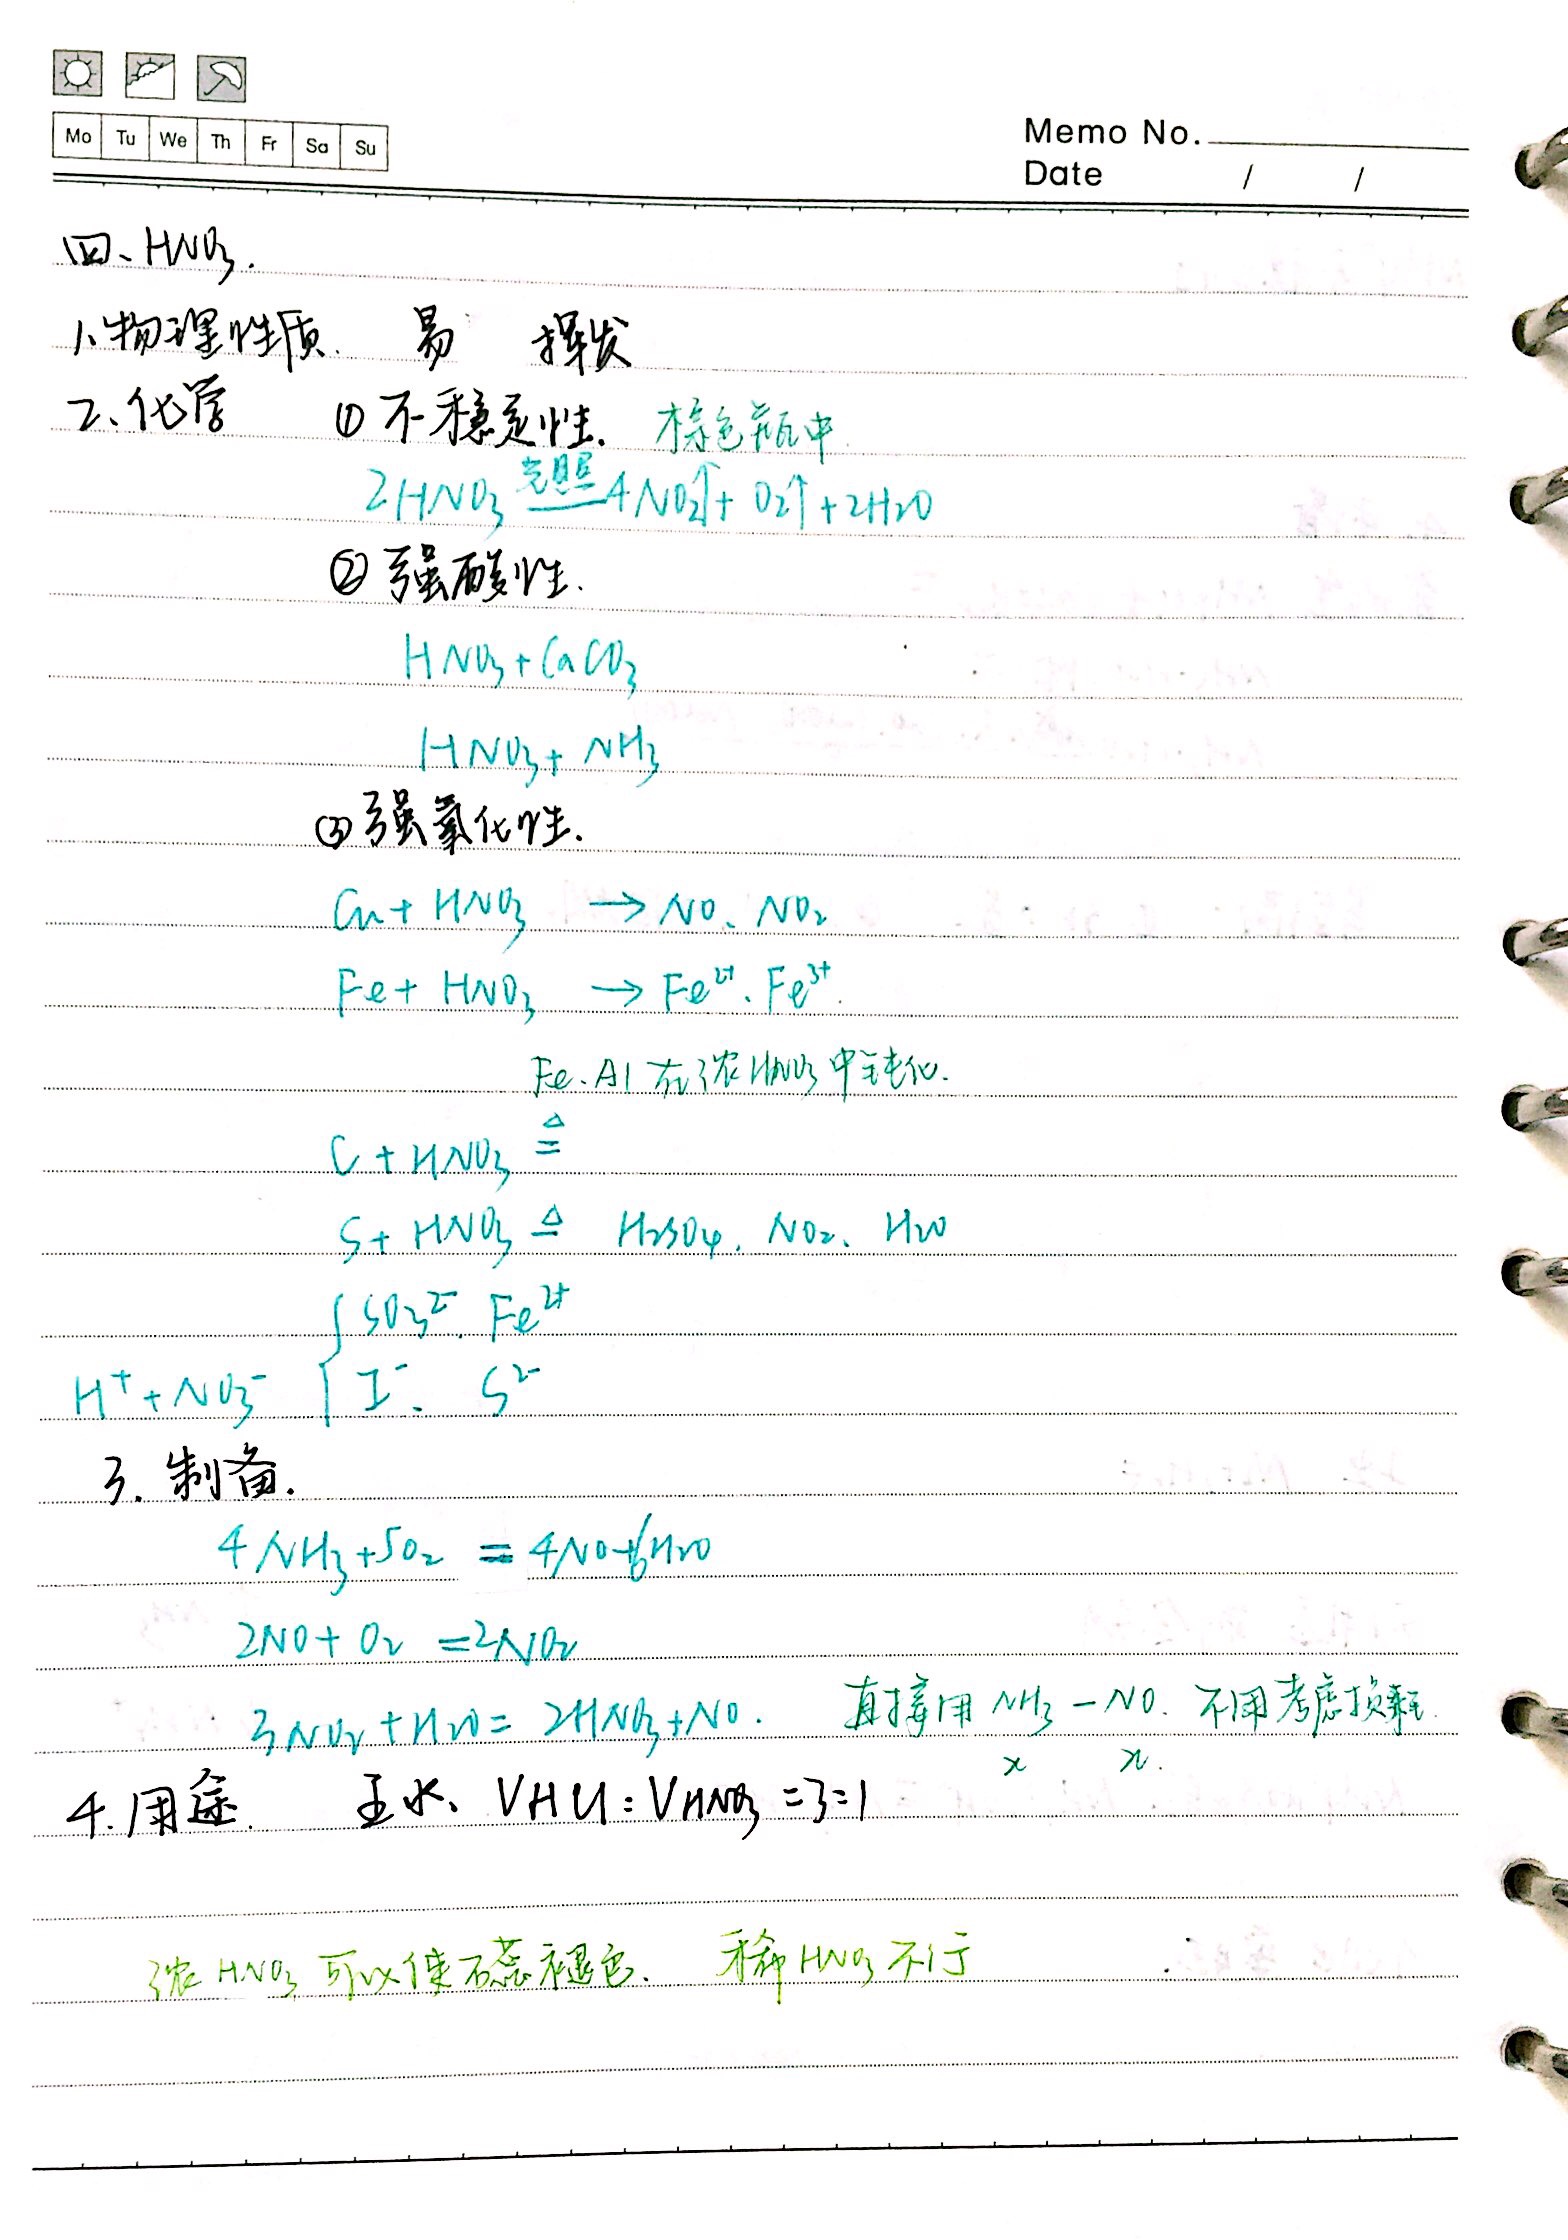 Mo Tu We Th Fr Sa Su
Memo No.
Date / /
四、HNO₃.
1、物理性质. 易 挥发
2、化学 ① 不稳定性. 棕色瓶中.
2HNO₃ 光照 4NO₂↑+ O₂↑+2H₂O
② 强酸性.
HNO₃+CaCO₃
HNO₃+ NH₃
③强氧化性.
Cu+ HNO₃ → NO、NO₂
Fe+ HNO₃ → Fe²⁺、Fe³⁺.
Fe、Al 在浓HNO₃中钝化.
C + HNO₃ ≜
S+ HNO₃ ≜ H₂SO₄、NO₂、H₂O
SO₃²⁻. Fe²⁺
H⁺+NO₃⁻ { I⁻. S²⁻
3. 制备.
4NH₃+5O₂ = 4NO+6H₂O
2NO+ O₂ =2NO₂
3NO₂+H₂O= 2HNO₃+NO. 直接用 NH₃ — NO. 不用考虑损耗.
x x.
4.用途. 王水、VHCl:VHNO₃=3:1
浓HNO₃可以使石蕊褪色、 稀HNO₃不行